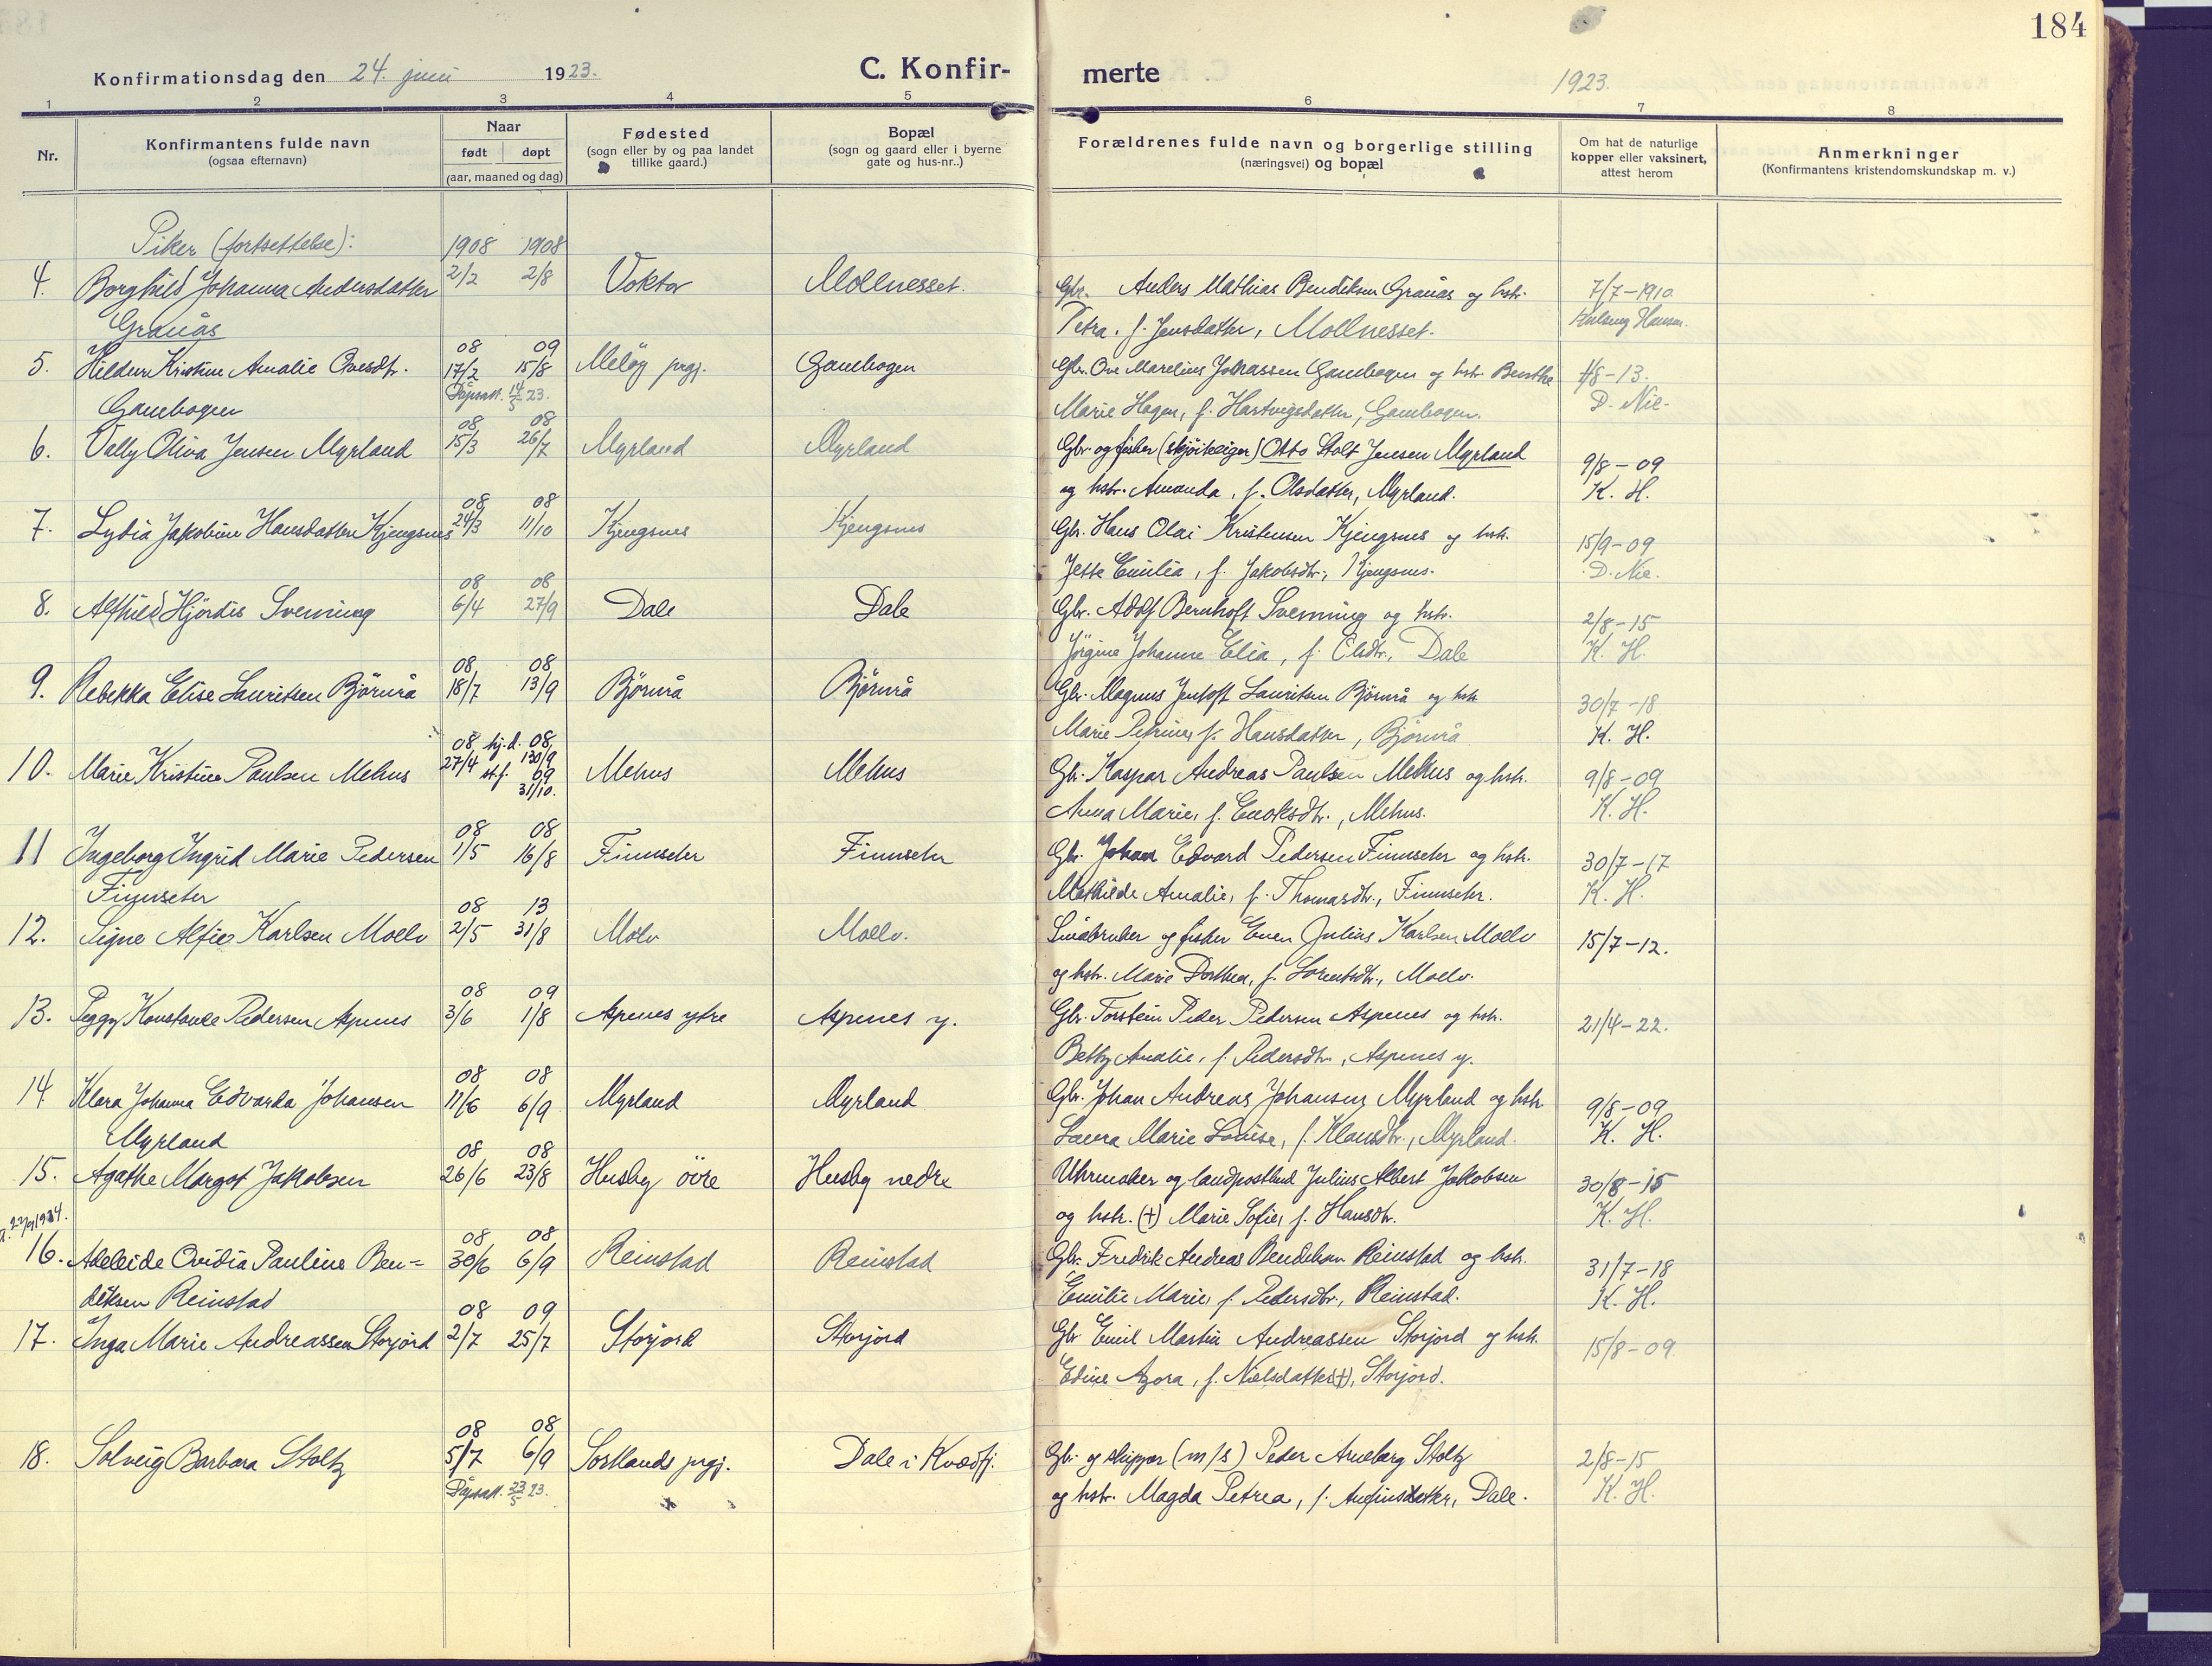 184
Konfirmationsdag den 24. juni 1923. C. Konfir- merte 1923.
1 2 3 4 5 6 7 8
Nr.
Konfirmantens fulde navn
(ogsaa efternavn)
Naar
født døpt
(aar, maaned og dag)
Fødested
(sogn eller by og paa landet
tillike gaard.)
Bopæl
(sogn og gaard eller i byerne
gate og hus-nr..)
Forældrenes fulde navn og borgerlige stilling
(næringsvei) og bopæl
Om hat de naturlige
kopper eller vaksinert,
attest herom
Anmerkninger
(Konfirmantens kristendomskundskap m. v.)
Piker (fortsettelse): 1908 1908
4. Borghild Johanna Andersdatter 2/2 2/8 Voktor Mollnesset. Gbr. Anders Mathias Bendiksen Granås og hstr. 7/7-1910.
Granås Petra, f. Jensdatter, Mollnesset. Hansen.
08 09
5. Hildur Kristine Amalie Ovesdtr. 17/2 15/8 Meløy prgj. Gambogen Gbr. Ove Marelius Johassen Gambogen og hstr. Benthe 8-13.
Gambogen Dåpsatt. 14/5 23. Marie Hagen, f. Hartvigsdatter, Gambogen. D. Nie-
08 08
6. Vally Oliva Jensen Myrland 15/3 26/7 Myrland Myrland Gbr. og fisker (skjøiteeiger) Otto Stolt Jensen Myrland 9/8-09
og hstr. Amanda, f. Olsdatter, Myrland. K. H.
08 08
7. Lydia Jakobine Hansdatter Kjengsnes 24/3 11/10 Kjengsnes Kjengsnes Gbr. Hans Olai Kristensen Kjengsnes og hstr. 15/9-09
Jette Emilia, f. Jakobsdtr., Kjengsnes. D. Nie.
08 08
8. Alfhild Hjørdis Svenning 6/4 27/9 Dale Dale Gbr. Adolf Bernhoft Svenning og hstr. 2/8-15
Jørgine Johanne Elia, f. Olsdtr., Dale K. H.
08 08
9. Rebekka Elise Lauritsen Bjørnrå 18/7 13/9 Bjørnrå Bjørnrå Gbr. Magnus Jentoft Lauritsen Bjørnrå og hstr 30/7-18
Marie Petrine, f. Hansdatter, Bjørnrå K. H.
08 hj.d. 08
10. Marie Kristine Paulsen Mehus 27/4 st.f. 130/9 Mehus Mehus Gbr. Kaspar Andreas Paulsen Mehus og hstr. 9/8-09
09 31/10. Anna Marie, f. Enoksdtr., Mehus. K. H.
08 08
11 Ingeborg Ingrid Marie Pedersen 1/5 16/8 Finnseter Finnseter Gbr. Johan Edvard Pedersen Finnseter og hstr. 30/7-17
Finnseter Mathilde Amalie, f. Thomasdtr., Finnseter. K. H.
08 13
12. Signe Alfie Karlsen Moelv 2/5 31/8 Molv Moelv. Småbruker og fisker Even Julius Karlsen Moelv 15/7-12.
og hstr. Marie Dorthea, f. Lorentsdtr., Moelv.
08 09
13. Peggy Konstance Pedersen Aspenes 3/6 1/8 Aspenes ytre Aspenes y. Gbr. Torstein Peder Pedersen Aspenes og hstr. 21/4-22.
Betty Amalie, f. Pedersdtr., Aspenes y.
08 08
14. Klara Johanna Edvarda Johansen 11/6 6/9 Myrland Myrland Gbr. Johan Andreas Johansen Myrland og hstr 9/8-09
Myrland Laura Marie Louise, f. Klausdtr., Myrland. K. H.
08 08
15. Agathe Margot Jakobsen 26/6 23/8 Husby övre Husby nedre Uhrmaker og landpostbud Julius Albert Jakobsen 30/8-15
og hstr. (+) Marie Sofie, f. Hansdtr. K. H.
08 08
16. Adeleide Ovidia Pauline Ben= 30/6 6/9 Reinstad Reinstad Gbr. Fredrik Andreas Bendiksen Reinstad og hstr. 31/7-18
diksen Reinstad Emilie Marie, f. Pedersdtr., Reinstad. K. H.
08 09
17. Inga Marie Andreassen Storjord 2/7 25/7 Storjord Storjord Gbr Emil Martin Andreassen Storjord og hstr. 15/8-09.
Edine Agora, f. Nielsdatter(+), Storjord.
08 08
18. Solveig Barbara Stoltz 5/7 6/9 Sortlands prgj. Dale i Kvædfj. Gbr. og skipper (m/s) Peder Arneberg Stoltz 2/8-15
Dåpsatt. 23/5 23. og hstr. Magda Petrea, f. Anfinsdatter, Dale. K. H.